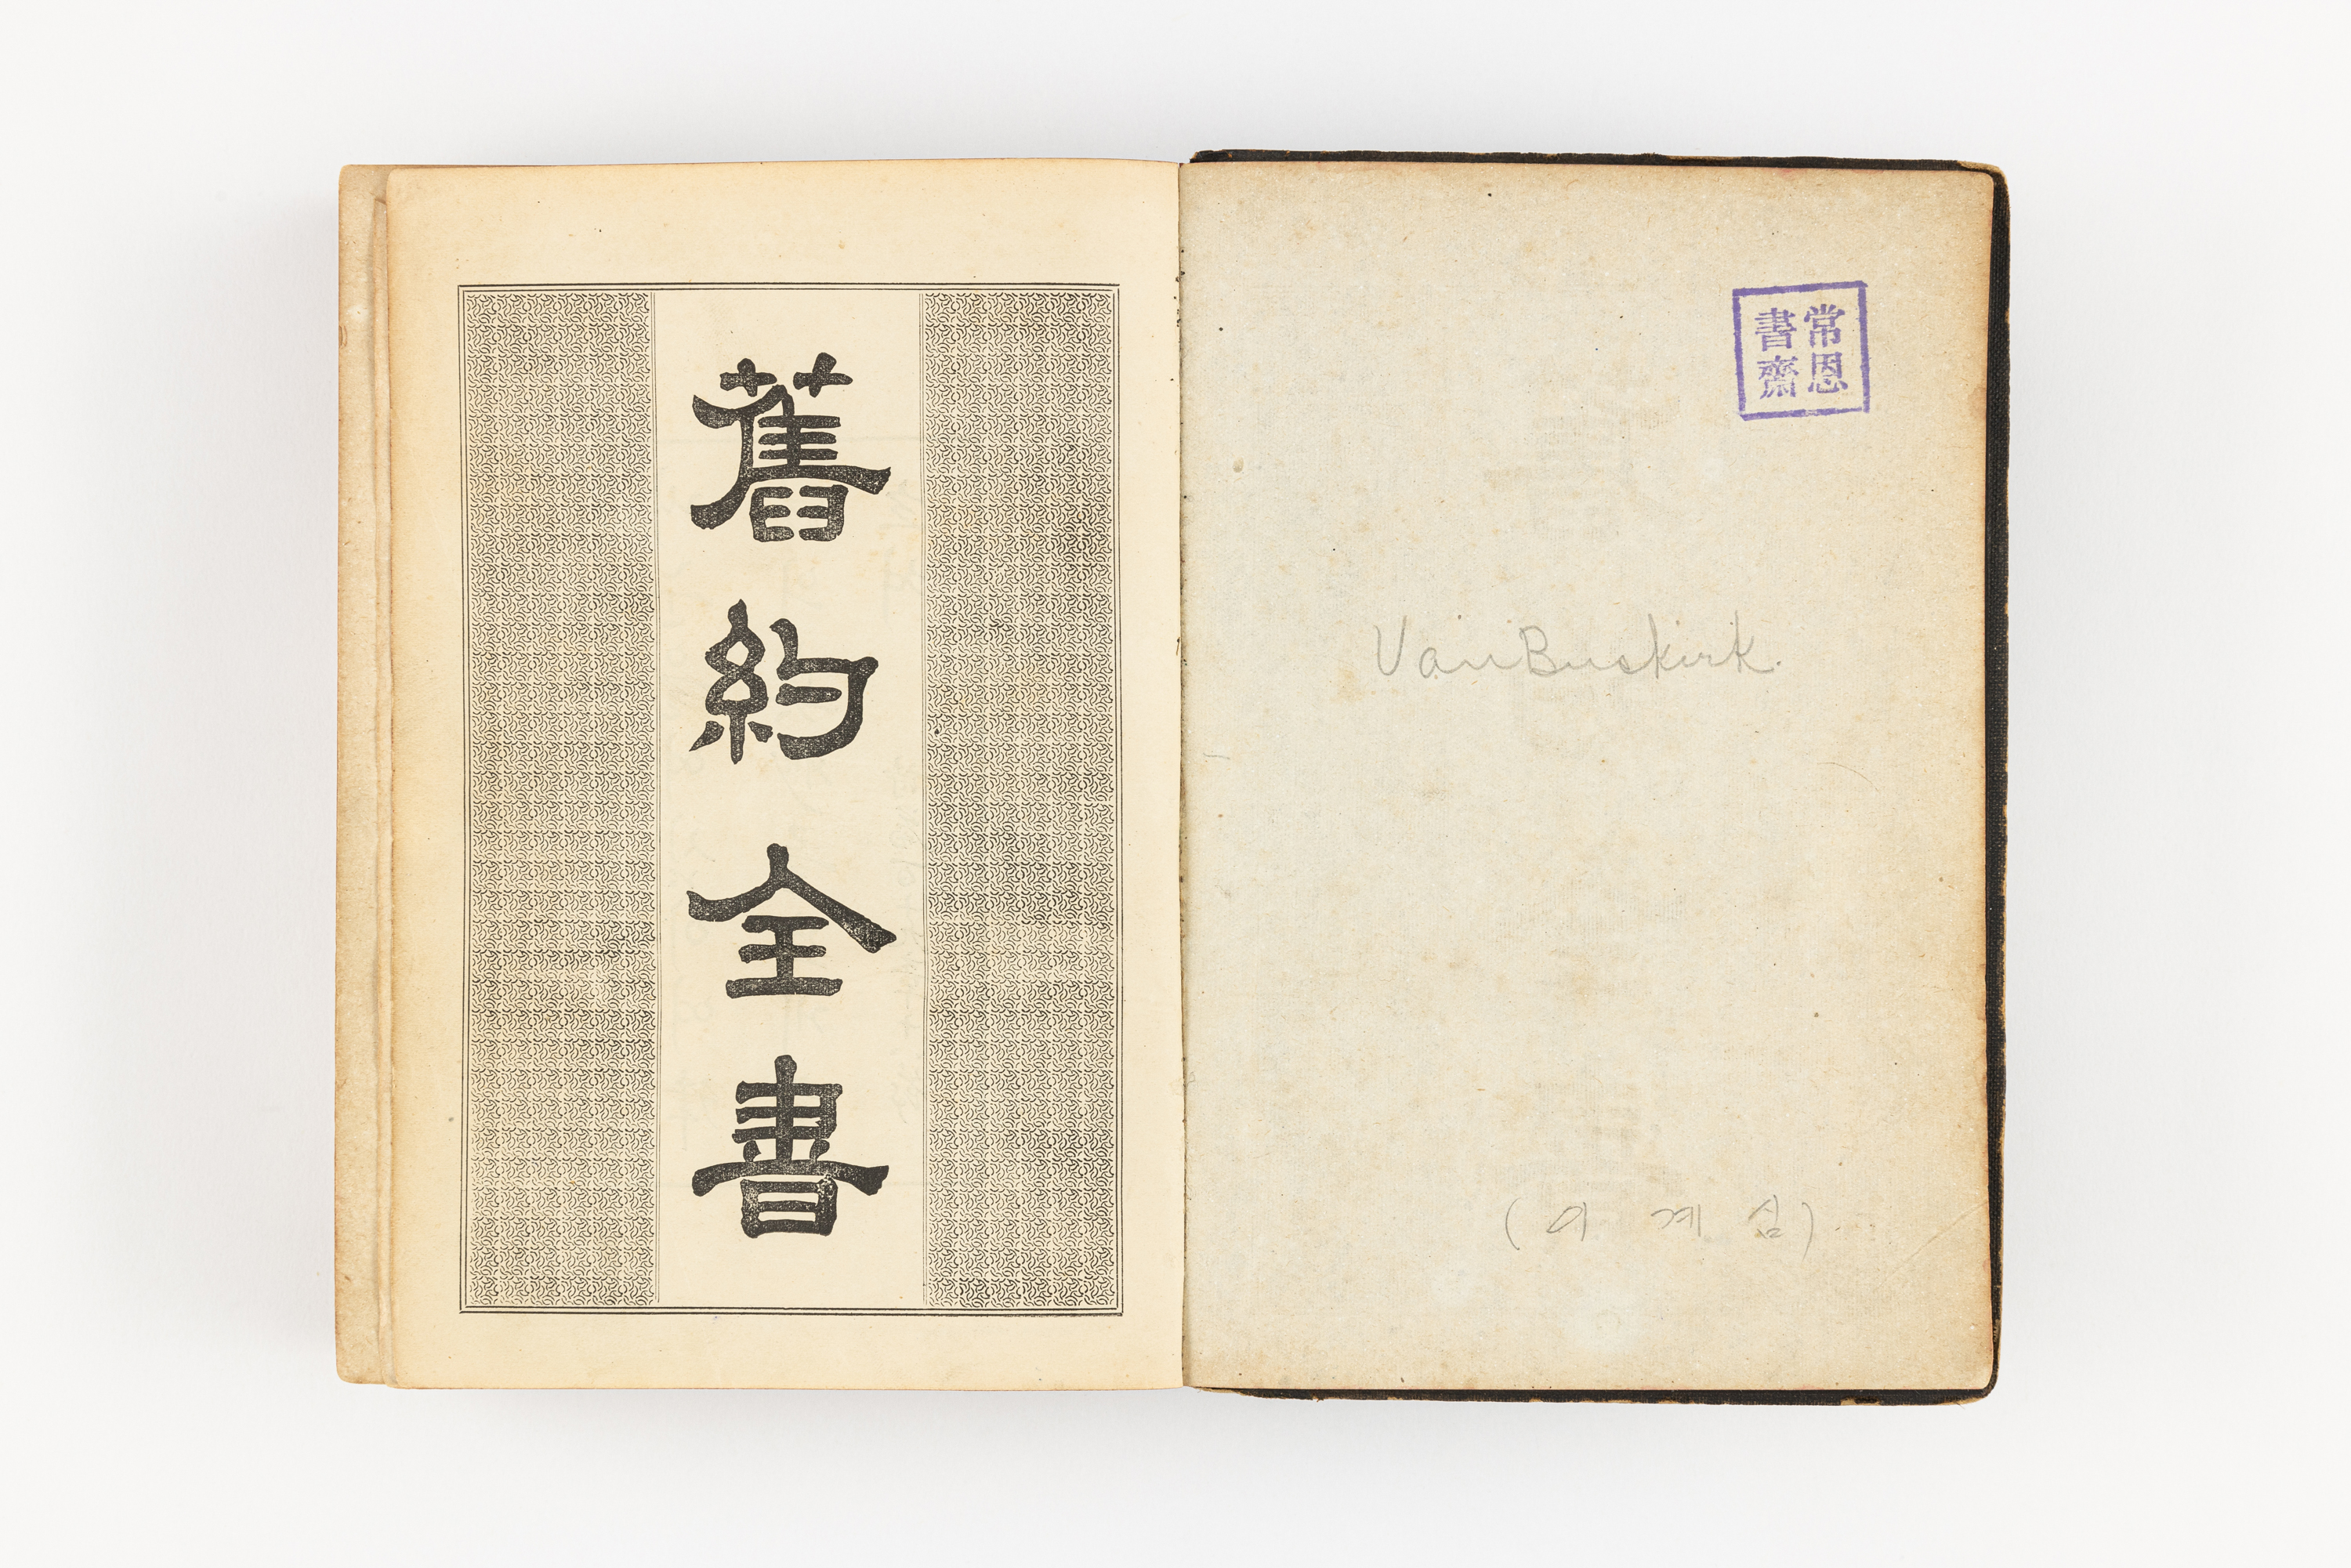 常恩
書齋
VanBuskirk.
(이 계 심)
舊約全書